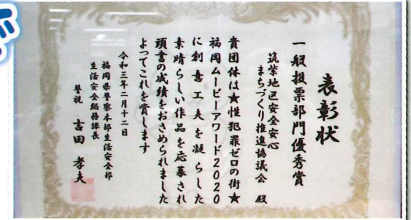 表彰状
一般投票部門優秀賞
筑紫地区安全安心
まちづくり推進協議会 殿
貴団体は★性犯罪ゼロの街★
福岡ムービーアワード2020
に創意工夫を凝らした
素晴らしい作品を応募され
頭書の成績をおさめられました
よってこれを賞します
令和三年二月十二日
福岡県警察本部生活安全部
生活安全総務課長
警視 吉田 孝夫